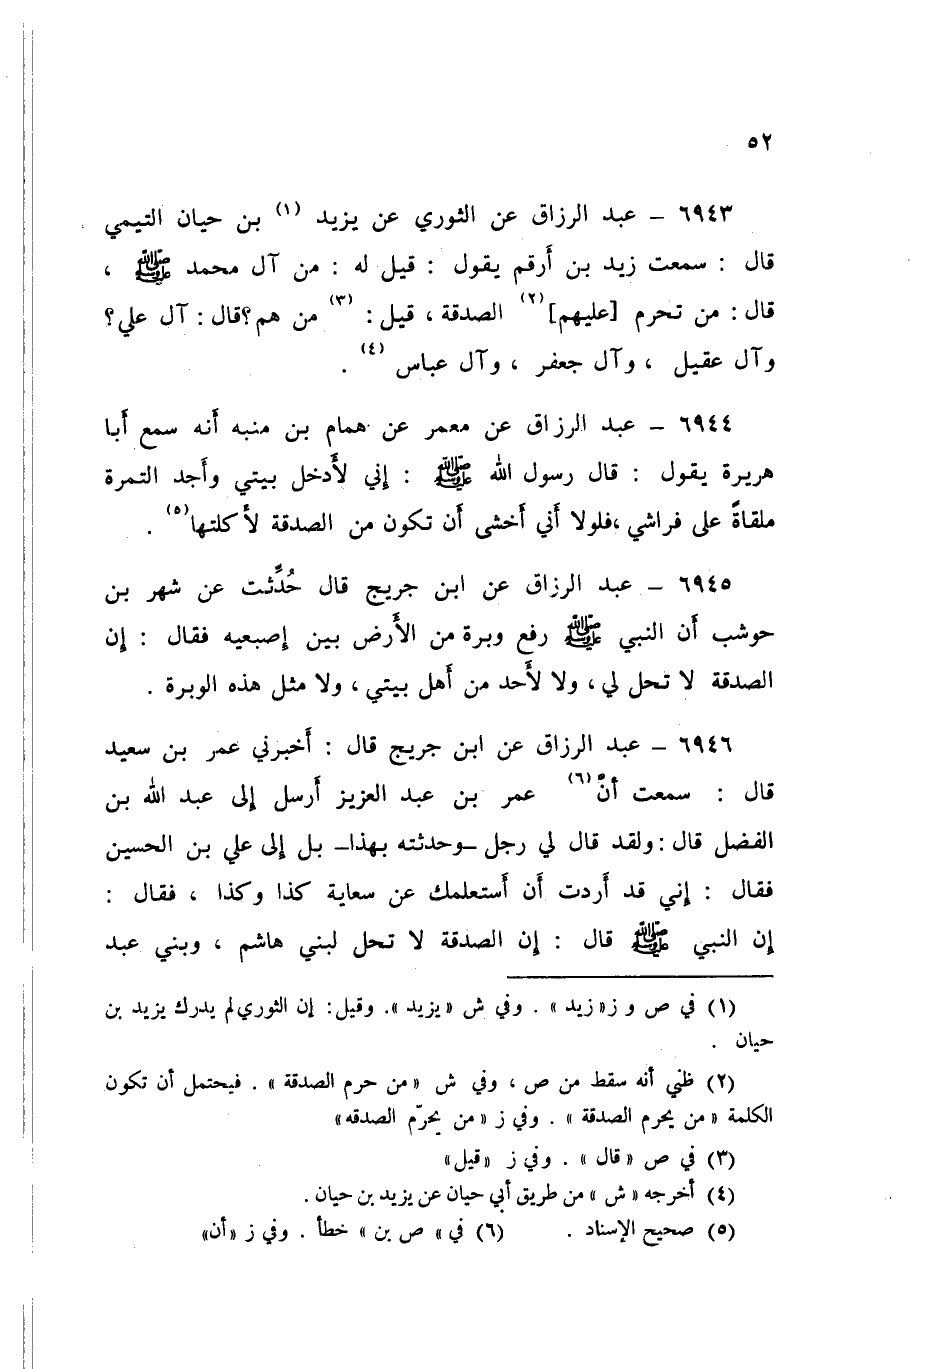 ٥٢
٦٩٤٣ – عبد الرزاق عن الثوري عن يزيد (١) بن حيان التيمي
قال : سمعت زيد بن أرقم يقول : قيل له : من آل محمد ﷺ ،
قال : من تحرم [عليهم] (٢) الصدقة ، قيل : (٣) من هم؟ قال : آل علي؟
وآل عقيل ، وآل جعفر ، وآل عباس (٤) .
٦٩٤٤ – عبد الرزاق عن معمر عن همام بن منبه أنه سمع أبا
هريرة يقول : قال رسول الله ﷺ : إني لأدخل بيتي وأجد التمرة
ملقاةً على فراشي ، فلولا أني أخشى أن تكون من الصدقة لأكلتها (٥) .
٦٩٤٥ – عبد الرزاق عن ابن جريج قال حُدِّثت عن شهر بن
حوشب أن النبي ﷺ رفع وبرة من الأرض بين إصبعيه فقال : إن
الصدقة لا تحل لي ، ولا لأحد من أهل بيتي ، ولا مثل هذه الوبرة .
٦٩٤٦ – عبد الرزاق عن ابن جريج قال : أخبرني عمر بن سعيد
قال : سمعت أنّ (٦) عمر بن عبد العزيز أرسل إلى عبد الله بن
الفضل قال : ولقد قال لي رجل –وحدثته بهذا– بل إلى علي بن الحسين
فقال : إني قد أردت أن أستعملك عن سعاية كذا وكذا ، فقال :
إن النبي ﷺ قال : إن الصدقة لا تحل لبني هاشم ، وبني عبد
(١) في ص و ز «زيد» . وفي ش «يزيد» . وقيل : إن الثوري لم يدرك يزيد بن
حيان .
(٢) ظني أنه سقط من ص ، وفي ش «من حرم الصدقة» . فيحتمل أن تكون
الكلمة «من يحرم الصدقة» . وفي ز «من يحرّم الصدقه»
(٣) في ص «قال» . وفي ز «قيل»
(٤) أخرجه «ش» من طريق أبي حيان عن يزيد بن حيان .
(٥) صحيح الإسناد . (٦) في «ص بن» خطأ . وفي ز «أن»